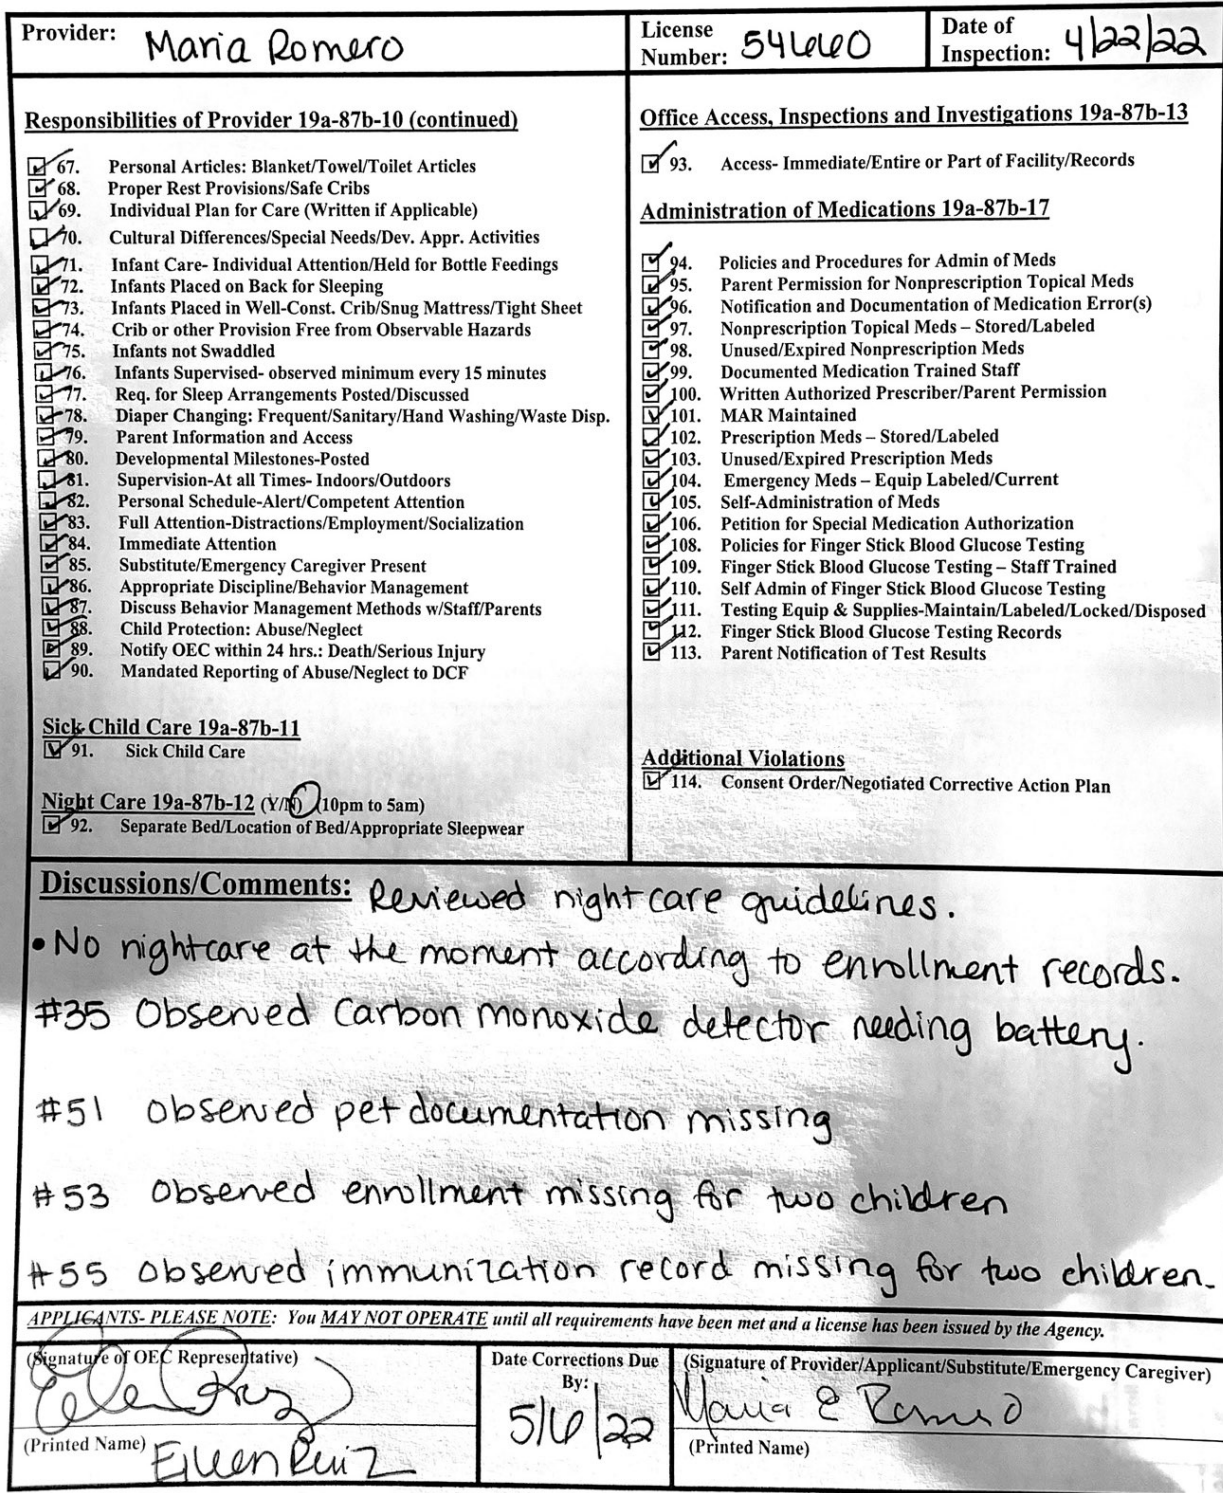 Provider: Maria Romero
License Number: 54660
Date of Inspection: 4/22/22
Responsibilities of Provider 19a-87b-10 (continued)
67. Personal Articles: Blanket/Towel/Toilet Articles
68. Proper Rest Provisions/Safe Cribs
69. Individual Plan for Care (Written if Applicable)
70. Cultural Differences/Special Needs/Dev. Appr. Activities
71. Infant Care- Individual Attention/Held for Bottle Feedings
72. Infants Placed on Back for Sleeping
73. Infants Placed in Well-Const. Crib/Snug Mattress/Tight Sheet
74. Crib or other Provision Free from Observable Hazards
75. Infants not Swaddled
76. Infants Supervised- observed minimum every 15 minutes
77. Req. for Sleep Arrangements Posted/Discussed
78. Diaper Changing: Frequent/Sanitary/Hand Washing/Waste Disp.
79. Parent Information and Access
80. Developmental Milestones-Posted
81. Supervision-At all Times- Indoors/Outdoors
82. Personal Schedule-Alert/Competent Attention
83. Full Attention-Distractions/Employment/Socialization
84. Immediate Attention
85. Substitute/Emergency Caregiver Present
86. Appropriate Discipline/Behavior Management
87. Discuss Behavior Management Methods w/Staff/Parents
88. Child Protection: Abuse/Neglect
89. Notify OEC within 24 hrs.: Death/Serious Injury
90. Mandated Reporting of Abuse/Neglect to DCF
Sick Child Care 19a-87b-11
91. Sick Child Care
Night Care 19a-87b-12 (Y/N) (10pm to 5am)
92. Separate Bed/Location of Bed/Appropriate Sleepwear
Office Access, Inspections and Investigations 19a-87b-13
93. Access- Immediate/Entire or Part of Facility/Records
Administration of Medications 19a-87b-17
94. Policies and Procedures for Admin of Meds
95. Parent Permission for Nonprescription Topical Meds
96. Notification and Documentation of Medication Error(s)
97. Nonprescription Topical Meds – Stored/Labeled
98. Unused/Expired Nonprescription Meds
99. Documented Medication Trained Staff
100. Written Authorized Prescriber/Parent Permission
101. MAR Maintained
102. Prescription Meds – Stored/Labeled
103. Unused/Expired Prescription Meds
104. Emergency Meds – Equip Labeled/Current
105. Self-Administration of Meds
106. Petition for Special Medication Authorization
108. Policies for Finger Stick Blood Glucose Testing
109. Finger Stick Blood Glucose Testing – Staff Trained
110. Self Admin of Finger Stick Blood Glucose Testing
111. Testing Equip & Supplies-Maintain/Labeled/Locked/Disposed
112. Finger Stick Blood Glucose Testing Records
113. Parent Notification of Test Results
Additional Violations
114. Consent Order/Negotiated Corrective Action Plan
Discussions/Comments: Reviewed night care guidelines.
• No nightcare at the moment according to enrollment records.
#35 Observed Carbon monoxide detector needing battery.
#51 Observed pet documentation missing
#53 Observed enrollment missing for two children
#55 Observed immunization record missing for two children.
APPLICANTS- PLEASE NOTE: You MAY NOT OPERATE until all requirements have been met and a license has been issued by the Agency.
(Signature of OEC Representative)
(Printed Name) Eileen Ruiz
Date Corrections Due By: 5/6/22
(Signature of Provider/Applicant/Substitute/Emergency Caregiver)
Maria E Romero
(Printed Name)